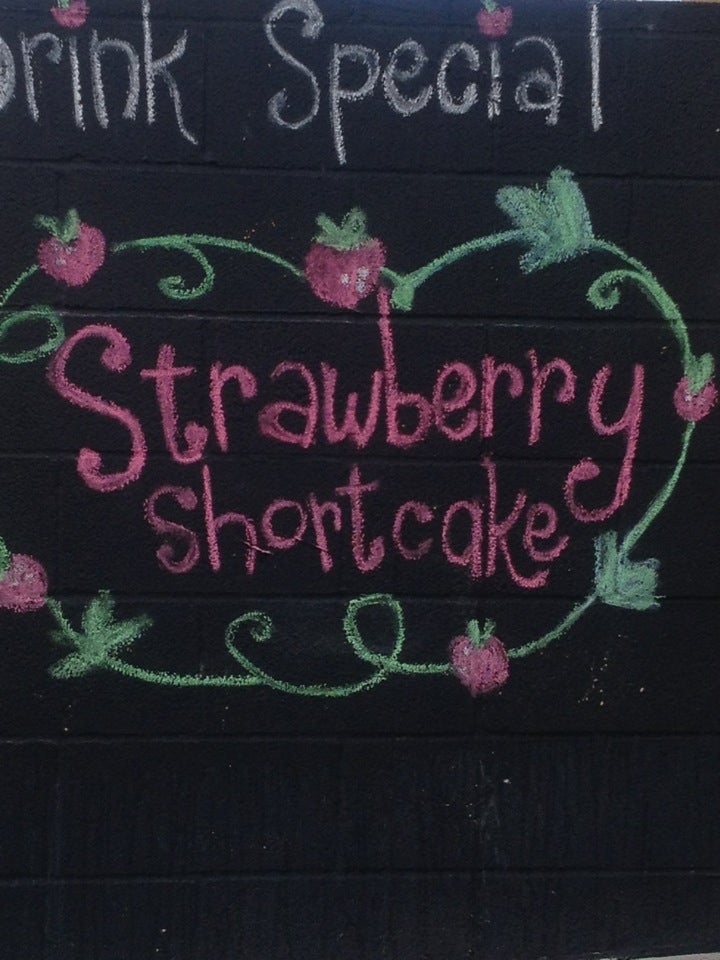 Drink Special
Strawberry
shortcake